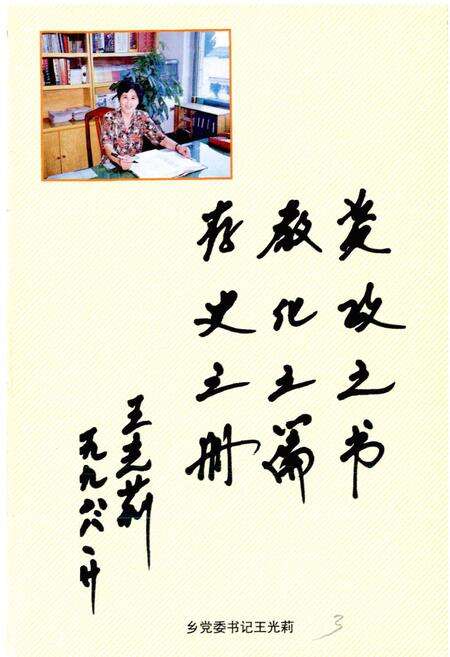 资政之书
教化之篇
存史之册
王光莉
一九九八八、廿
乡党委书记王光莉
3